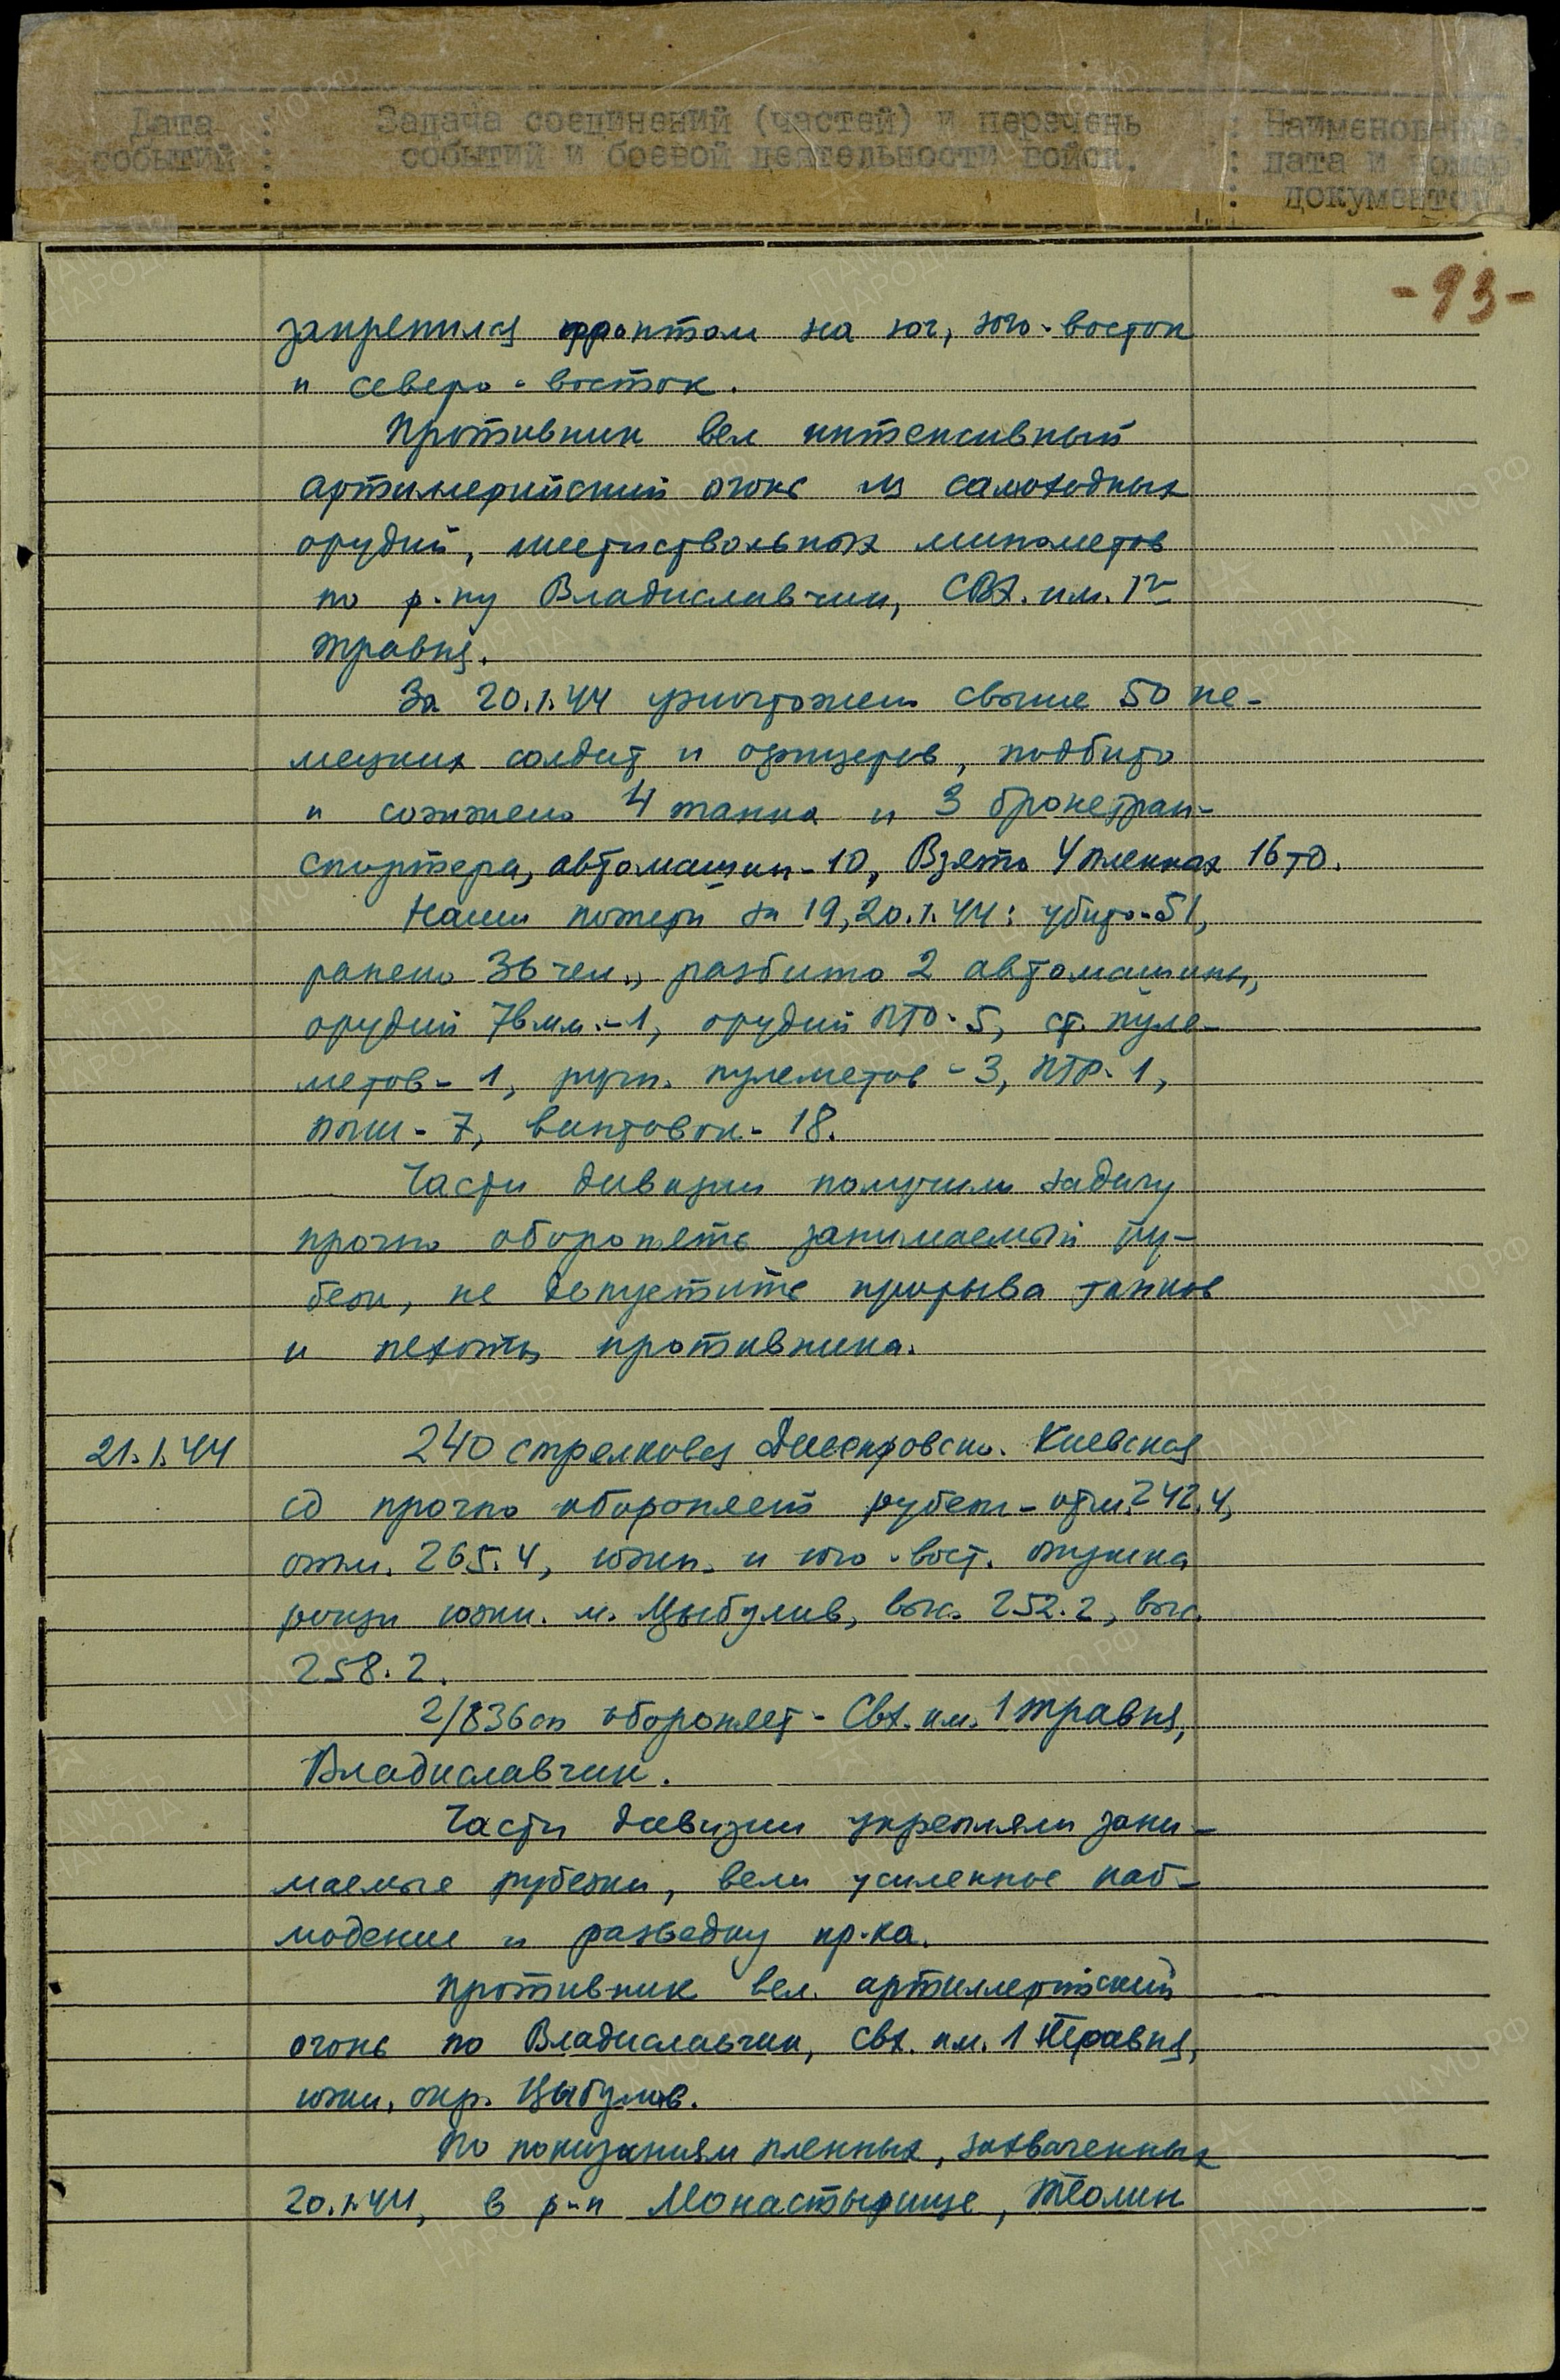 Дата событий : Задача соединений (частей) и перечень событий и боевой деятельности войск. : Наименование, дата и номер документов.
-93-
закрепился фронтом на юг, юго-восток
и северо-восток.
Противник вел интенсивный
артиллерийский огонь из самоходных
орудий, шестиствольных минометов
по р-ну Владиславчик, СВХ. им. 1го
травня.
За 20.1.44 уничтожено свыше 50 не-
мецких солдат и офицеров, подбито
и сожжено 4 танка и 3 бронетран-
спортера, автомашин-10, Взято 4 пленных 16 тд.
Наши потери за 19, 20.1.44: убито-51,
ранено 36 чел., разбито 2 автомашины,
орудий 76 мм.-1, орудий ПТО-5, ст. пуле-
метов-1, ручн. пулеметов-3, ПТР-1,
ППШ-7, винтовок-18.
Части дивизии получили задачу
прочно оборонять занимаемый ру-
беж, не допустить прорыва танков
и пехоты противника.
21.1.44 240 стрелковая Днепровско. Киевская
сд прочно обороняет рубеж-отм. 242.4,
отм. 265.4, южн. и юго-вост. опушка
рощи южн. м. Цыбулив, выс. 252.2, выс.
258.2.
2/836 сп обороняет-Свх. им. 1 травня,
Владиславчик.
Части дивизии укрепляли зани-
маемые рубежи, вели усиленное наб-
людение и разведку пр-ка.
Противник вел артиллерийский
огонь по Владиславчик, свх. им. 1 Травня,
южн. окр. Цыбулив.
По показаниям пленных, захваченных
20.1.44, в р-н Монастырище,